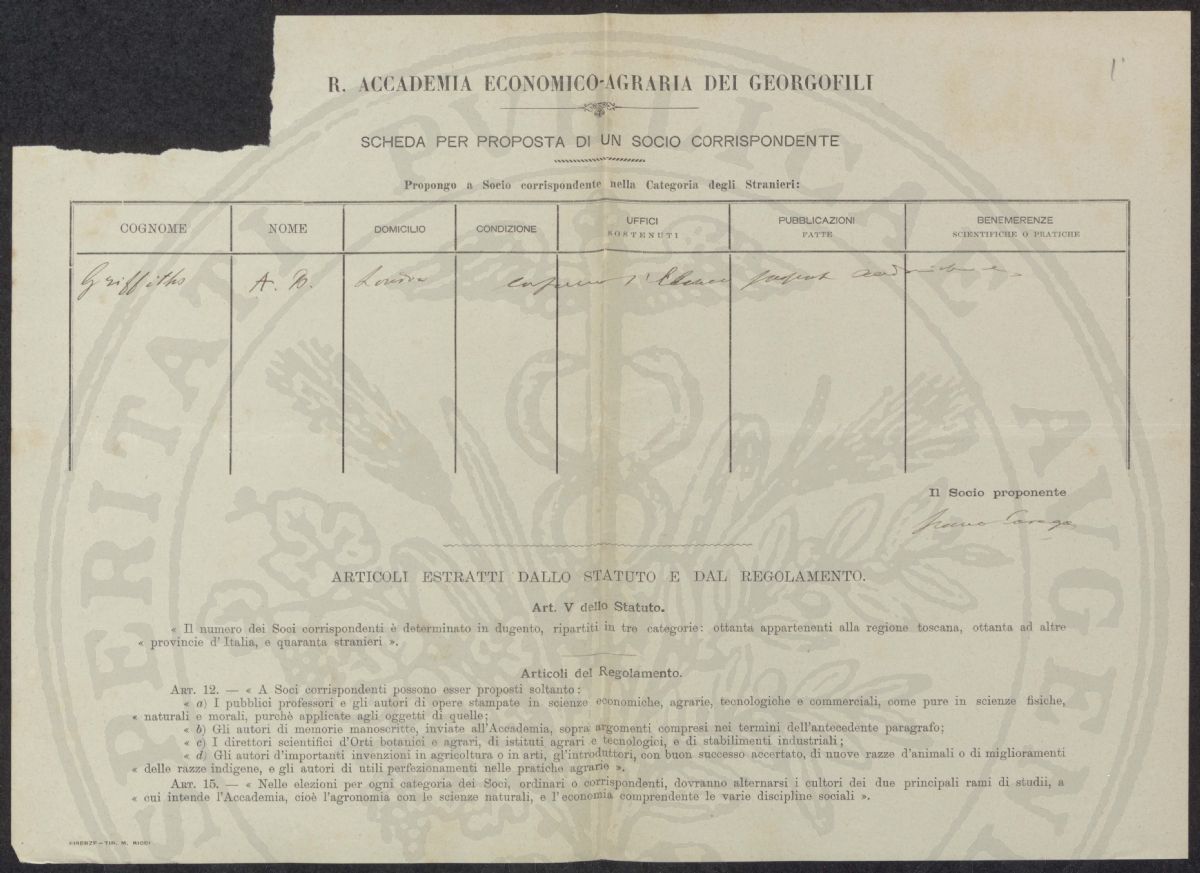 1
R. ACCADEMIA ECONOMICO-AGRARIA DEI GEORGOFILI
SCHEDA PER PROPOSTA DI UN SOCIO CORRISPONDENTE
Propongo a Socio corrispondente nella Categoria degli Stranieri:
COGNOME NOME DOMICILIO CONDIZIONE UFFICI SOSTENUTI PUBBLICAZIONI FATTE BENEMERENZE SCIENTIFICHE O PRATICHE
Griffiths A. B. London
Il Socio proponente
ARTICOLI ESTRATTI DALLO STATUTO E DAL REGOLAMENTO.
Art. V dello Statuto.
« Il numero dei Soci corrispondenti è determinato in dugento, ripartiti in tre categorie: ottanta appartenenti alla regione toscana, ottanta ad altre
« provincie d'Italia, e quaranta stranieri ».
Articoli del Regolamento.
ART. 12. — « A Soci corrispondenti possono esser proposti soltanto:
« a) I pubblici professori e gli autori di opere stampate in scienze economiche, agrarie, tecnologiche e commerciali, come pure in scienze fisiche,
« naturali e morali, purchè applicate agli oggetti di quelle;
« b) Gli autori di memorie manoscritte, inviate all'Accademia, sopra argomenti compresi nei termini dell'antecedente paragrafo;
« c) I direttori scientifici d'Orti botanici e agrari, di istituti agrari e tecnologici, e di stabilimenti industriali;
« d) Gli autori d'importanti invenzioni in agricoltura o in arti, gl'introduttori, con buon successo accertato, di nuove razze d'animali o di miglioramenti
« delle razze indigene, e gli autori di utili perfezionamenti nelle pratiche agrarie ».
ART. 15. — « Nelle elezioni per ogni categoria dei Soci, ordinari o corrispondenti, dovranno alternarsi i cultori dei due principali rami di studii, a
« cui intende l'Accademia, cioè l'agronomia con le scienze naturali, e l'economia comprendente le varie discipline sociali ».
FIRENZE – TIP. M. RICCI
PROSPERITATI PUBLICAE AVGENDAE